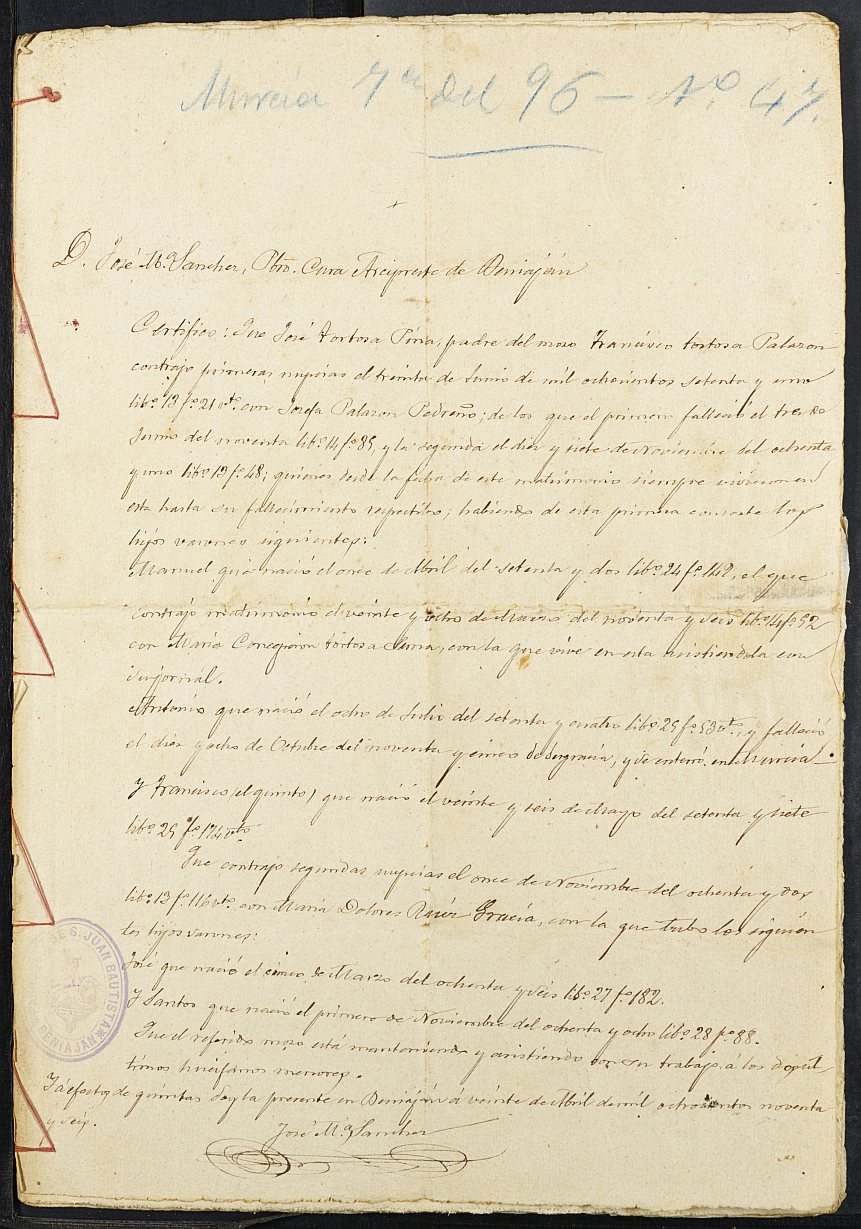 Murcia 7ª del 96 - Nº 47.
D. José Mª Sanchez, Pbro. Cura Arcipreste de Beniaján
Certifico: Que José Tortosa Pina, padre del mozo Francisco Tortosa Palazon
contrajo primeras nupcias el treinta de Junio de mil ochocientos setenta y uno
libº 13 fº 21 vtº con Josefa Palazon Pedreño; de los que el primero falleció el tres de
Junio del noventa libº 14 fº 85, y la segunda el diez y siete de Noviembre del ochenta
y uno libº 13 fº 48; quienes desde la fecha de este matrimonio siempre vivieron en
esta hasta su fallecimiento respectibo; habiendo de esta primera consorte los
hijos varones siguientes:
Manuel que nació el once de Abril del setenta y dos libº 24 fº 149, el que
contrajo matrimonio el veinte y ocho de Marzo del noventa y seis libº 14 fº 92
con María Concepcion Tortosa Serna, con la que vive en esta asistiendola con
su jornal.
Antonio que nació el ocho de Julio del setenta y cuatro libº 25 fº 53 vtº, y falleció
el diez y ocho de Octubre del noventa y cinco de desgracia, y se enterró en Murcia.
Y Francisco (el quinto) que nació el veinte y seis de Mayo del setenta y siete
libº 25 fº 174 vto
Que contrajo segundas nupcias el once de Noviembre del ochenta y dos
libº 13 fº 116 vtº con María Dolores Gracia, con la que tubo los siguien
tes hijos varones:
José que nació el cinco de Marzo del ochenta y seis libº 27 fº 182.
Y Santos que nació el primero de Noviembre del ochenta y ocho libº 28 fº 88.
Que el referido mozo está manteniendo y asistiendo con su trabajo á los dos ul
timos huérfanos menores.
Y á efectos de quintas doy la presente en Beniaján á veinte de Abril de mil ochocientos noventa
y seis.
José Mª Sanchez
DE S. JUAN BAUTISTA
BENIAJAN